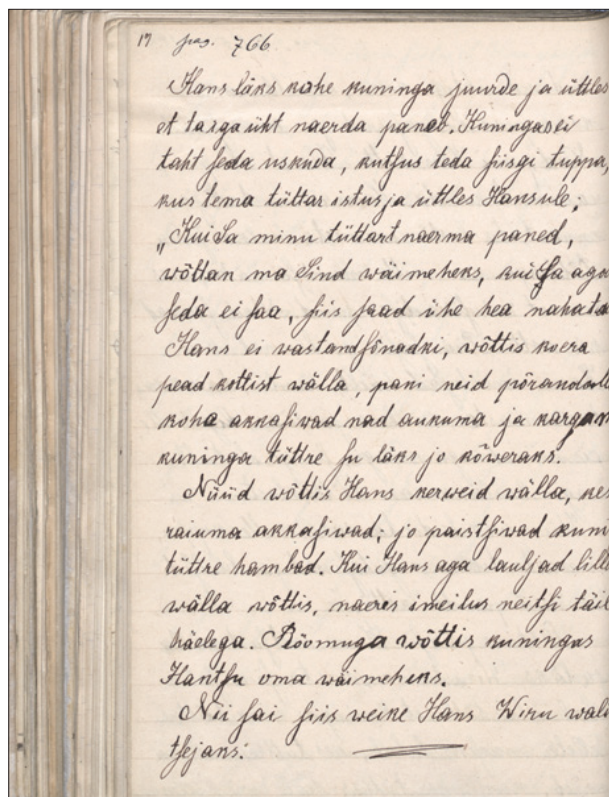 17 pag. 766
Hans läks kohe kuninga juurde ja üttles
et ta iga üht naerda paneb. Kuningas ei
taht seda uskuda, kutsus teda siisgi tuppa,
kus tema tüttar istus ja üttles Hansule:
„Kui Sa minu tüttart naerma paned,
wõttan ma Sind wäimeheks, kui Sa aga
seda ei saa, siis saad ühe hea nahata
Hans ei wastand sõnadki, wõttis koera
pead kottist wälla, pani neid põrandall
kohe akkasiwad nad aukuma ja kargam
kuninga tüttre su läks jo kõweraks.
Nüüd wõttis Hans kerweid wälla, kes
raiuma akkasiwad; jo paistsiwad kun
tüttre hambad. Kui Hans aga lauljad lill
wälla wõttis, naeris imeilus neitsi täi
häelega. Rõõmuga wõttis kuningas
Hantsu oma wäimeheks.
Nii sai siis weike Hans Wiru wali
tsejans.